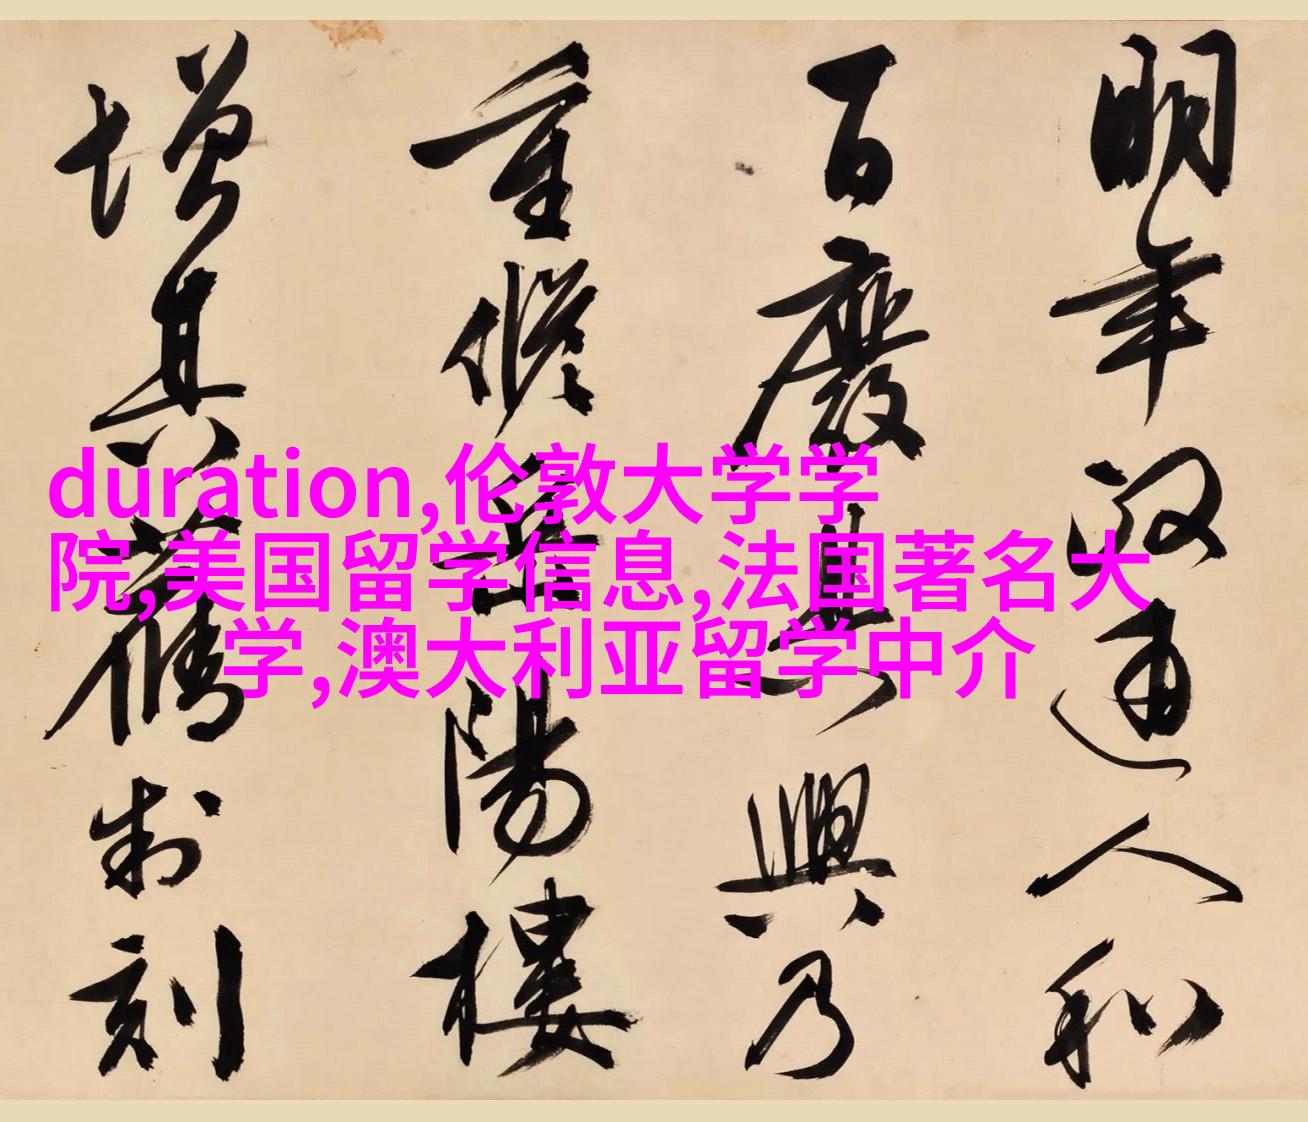 明年政通人和
百废具興乃
重修岳陽樓
增其舊制刻
duration,伦敦大学学
院,美国留学信息,法国著名大
学,澳大利亚留学中介